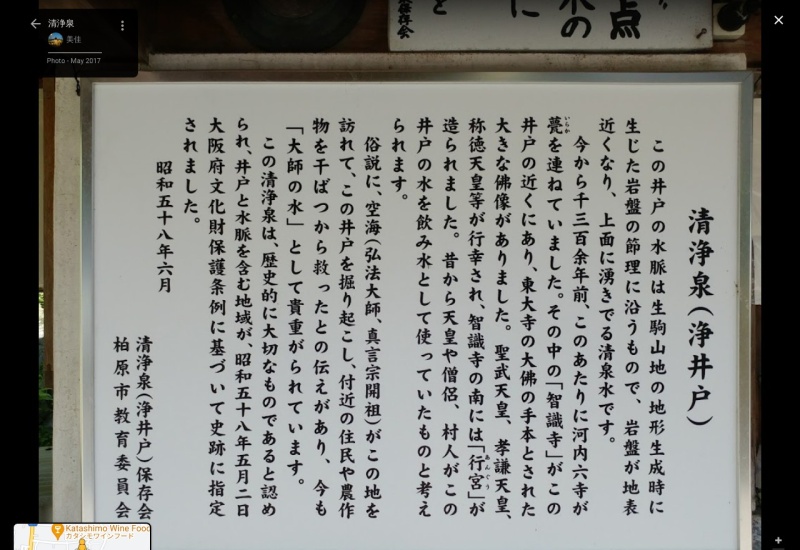 清浄泉
美佳
Photo - May 2017
点
水の
に
と
保存会
清浄泉(浄井戸)
この井戸の水脈は生駒山地の地形生成時に
生じた岩盤の節理に沿うもので、岩盤が地表
近くなり、上面に湧きでる清泉水です。
今から千三百余年前、このあたりに河内六寺が
甍を連ねていました。その中の「智識寺」がこの
いらか
井戸の近くにあり、東大寺の大佛の手本とされた
大きな佛像がありました。聖武天皇、孝謙天皇、
称徳天皇等が行幸され、智識寺の南には「行宮」が
あんぐう
造られました。昔から天皇や僧侶、村人がこの
井戸の水を飲み水として使っていたものと考え
られます。
俗説に、空海(弘法大師、真言宗開祖)がこの地を
訪れて、この井戸を掘り起こし、付近の住民や農作
物を干ばつから救ったとの伝えがあり、今も
「大師の水」として貴重がられています。
この清浄泉は、歴史的に大切なものであると認め
られ、井戸と水脈を含む地域が、昭和五十八年五月二日
大阪府文化財保護条例に基づいて史跡に指定
されました。
昭和五十八年六月
清浄泉(浄井戸)保存会
柏原市教育委員会
Katashimo Wine Food
カタシモワインフード